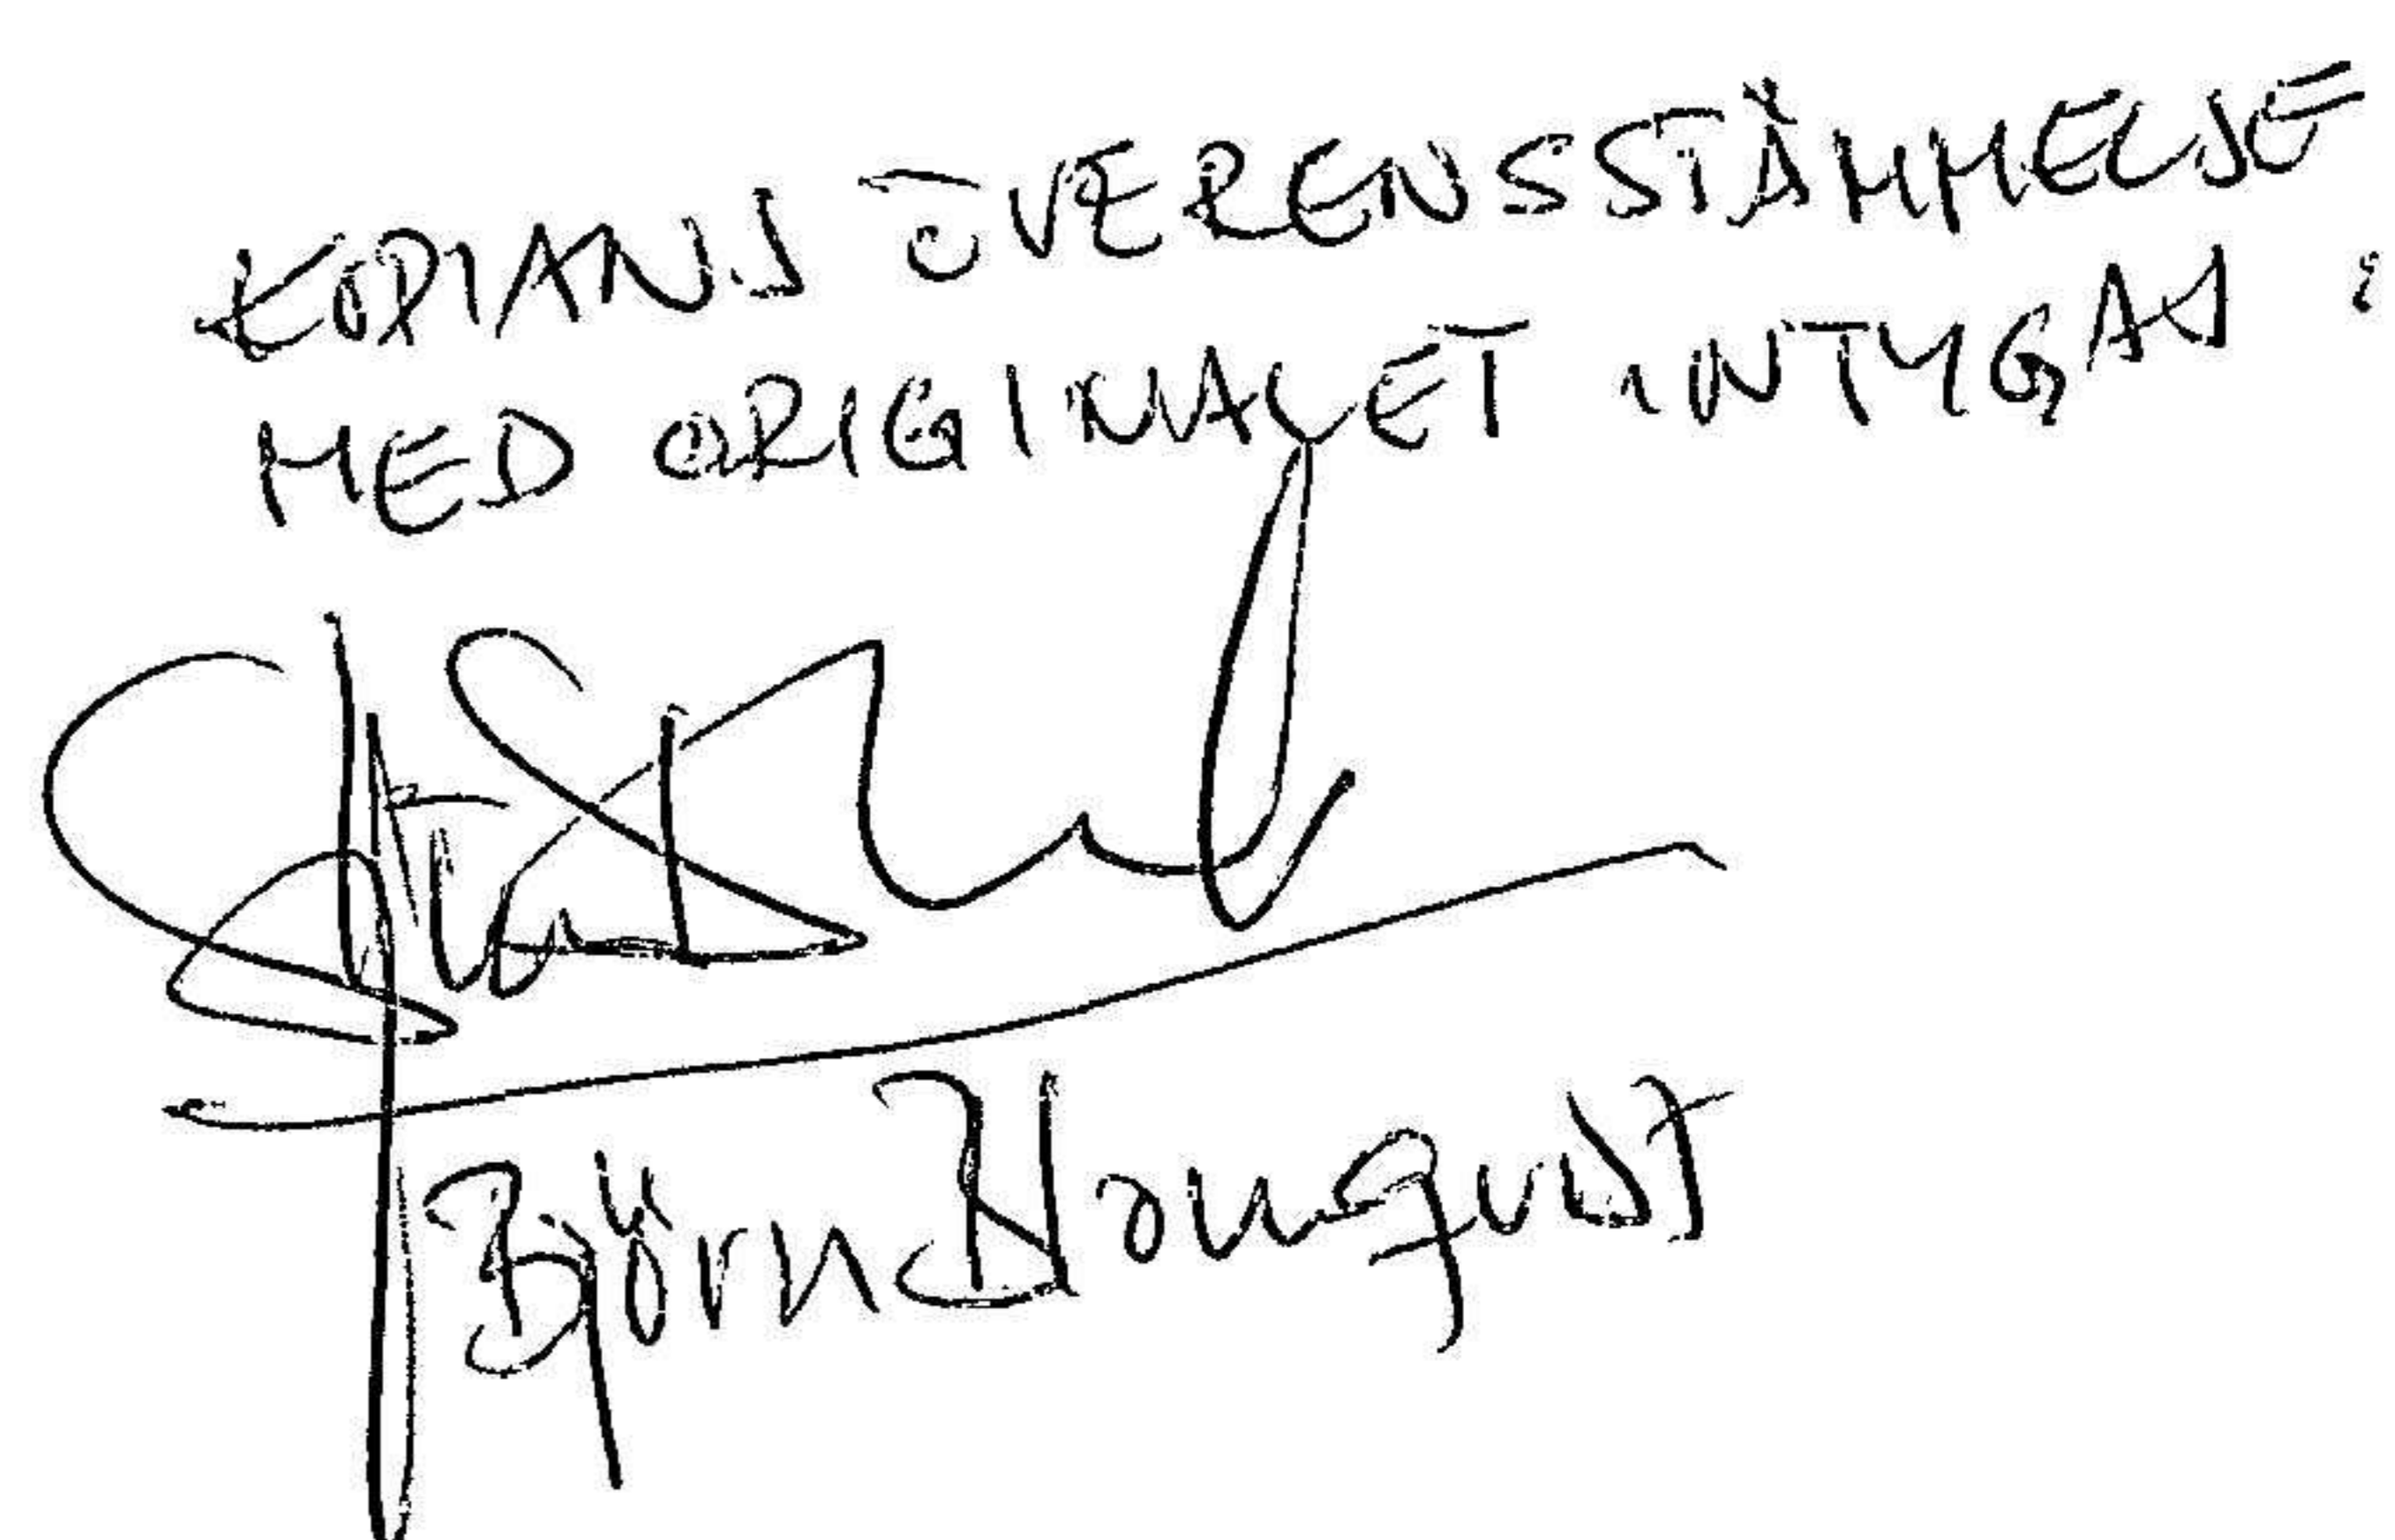 KOPIANS ÖVERENSSTÄMMELSE
MED ORIGINALET INTYGAS :
Björn